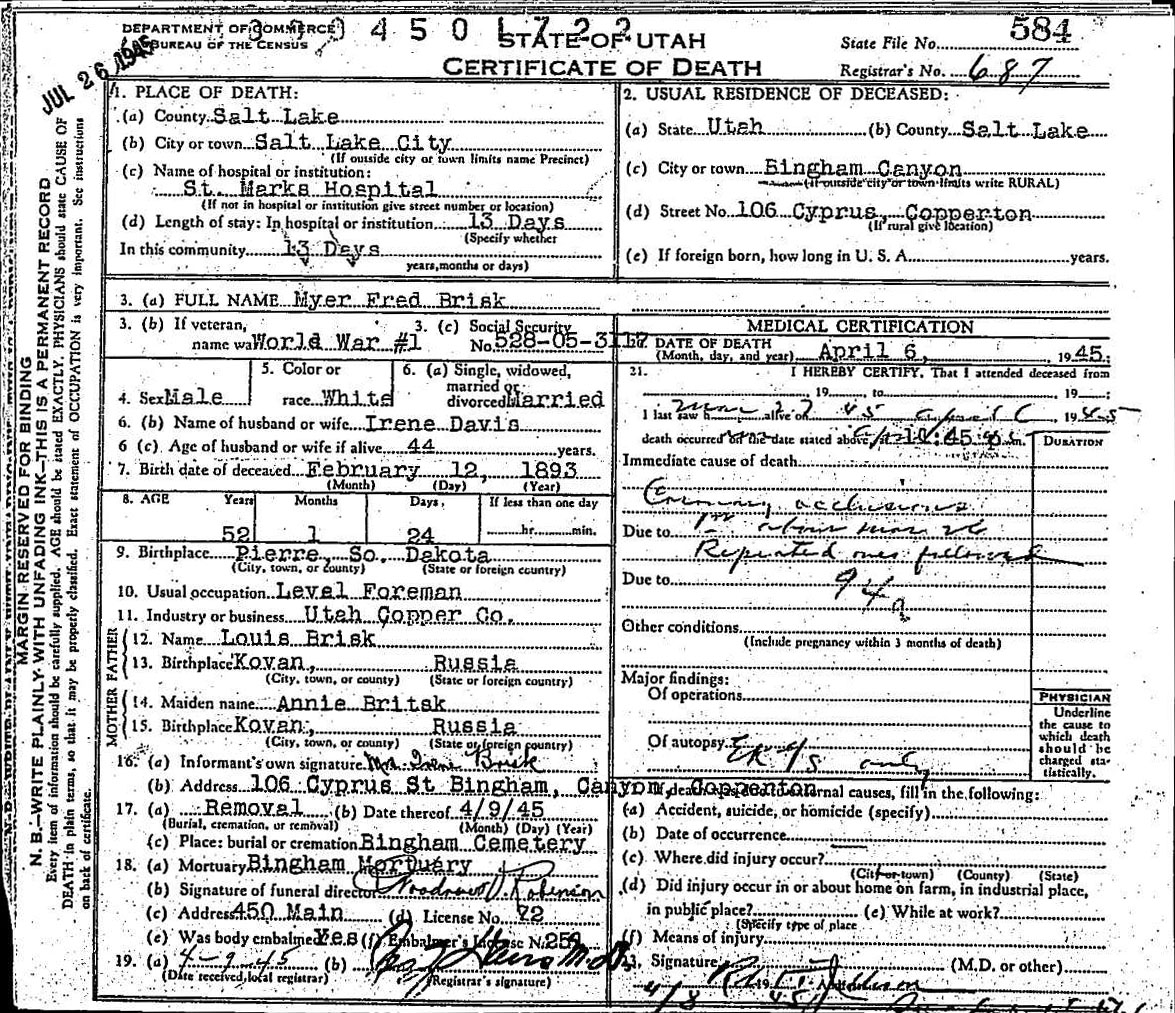 DEPARTMENT OF COMMERCE
BUREAU OF THE CENSUS
JUL 26 1945
4 5 0 1 7 2 2
STATE OF UTAH
CERTIFICATE OF DEATH
State File No. 584
Registrar's No. 687
MARGIN RESERVED FOR BINDING
N. B.—WRITE PLAINLY WITH UNFADING INK—THIS IS A PERMANENT RECORD
Every item of information should be carefully supplied. AGE should be stated EXACTLY. PHYSICIANS should state CAUSE OF
DEATH in plain terms, so that it may be properly classified. Exact statement of OCCUPATION is very important. See instructions
on back of certificate.
1. PLACE OF DEATH:
(a) County Salt Lake
(b) City or town Salt Lake City
(If outside city or town limits name Precinct)
(c) Name of hospital or institution:
St. Marks Hospital
(If not in hospital or institution give street number or location)
(d) Length of stay: In hospital or institution 13 Days
(Specify whether
In this community 13 Days
years, months or days)
2. USUAL RESIDENCE OF DECEASED:
(a) State Utah (b) County Salt Lake
(c) City or town Bingham Canyon
(If outside city or town limits write RURAL)
(d) Street No. 106 Cyprus, Copperton
(If rural give location)
(e) If foreign born, how long in U. S. A. years.
3. (a) FULL NAME Myer Fred Brisk
3. (b) If veteran, 3. (c) Social Security
name wa World War #1 No. 528-05-3117
4. Sex Male
5. Color or
race White
6. (a) Single, widowed,
married or
divorced Married
6. (b) Name of husband or wife Irene Davis
6 (c) Age of husband or wife if alive 44 years.
7. Birth date of deceased February 12, 1893
(Month) (Day) (Year)
8. AGE Years Months Days If less than one day
52 1 24 hr. min.
9. Birthplace Pierre, So. Dakota
(City, town, or county) (State or foreign country)
10. Usual occupation Level Foreman
11. Industry or business Utah Copper Co.
FATHER
12. Name Louis Brisk
13. Birthplace Kovan, Russia
(City, town, or county) (State or foreign country)
MOTHER
14. Maiden name Annie Britsk
15. Birthplace Kovan, Russia
(City, town, or county) (State or foreign country)
16. (a) Informant's own signature Mrs. Irene Brisk
(b) Address 106 Cyprus St Bingham, Canyon, Copperton
17. (a) Removal (b) Date thereof 4/9/45
(Burial, cremation, or removal) (Month) (Day) (Year)
(c) Place: burial or cremation Bingham Cemetery
18. (a) Mortuary Bingham Mortuary
(b) Signature of funeral director Robinson
(c) Address 450 Main (d) License No. 72
(e) Was body embalmed Yes (f) Embalmer's License N. 25
19. (a) 4-9-45 (b) M.D.
(Date received local registrar) (Registrar's signature)
MEDICAL CERTIFICATION
DATE OF DEATH
(Month, day, and year) April 6, 1945
21. I HEREBY CERTIFY, That I attended deceased from
19 to 19
I last saw h alive on Mar 27 45 April 6 1945
death occurred on the date stated above, 10:45 m.
DURATION
Immediate cause of death
Coronary occlusions
Due to 1st about Mar 26
Repeated ones followed
Due to 94a
Other conditions
(Include pregnancy within 3 months of death)
Major findings:
Of operations
Of autopsy only
PHYSICIAN
Underline
the cause to
which death
should be
charged sta-
tistically.
If death external causes, fill in the following:
(a) Accident, suicide, or homicide (specify)
(b) Date of occurrence
(c) Where did injury occur?
(City or town) (County) (State)
(d) Did injury occur in or about home on farm, in industrial place,
in public place? (e) While at work?
(Specify type of place
(f) Means of injury
23. Signature (M.D. or other)
4/8 1945